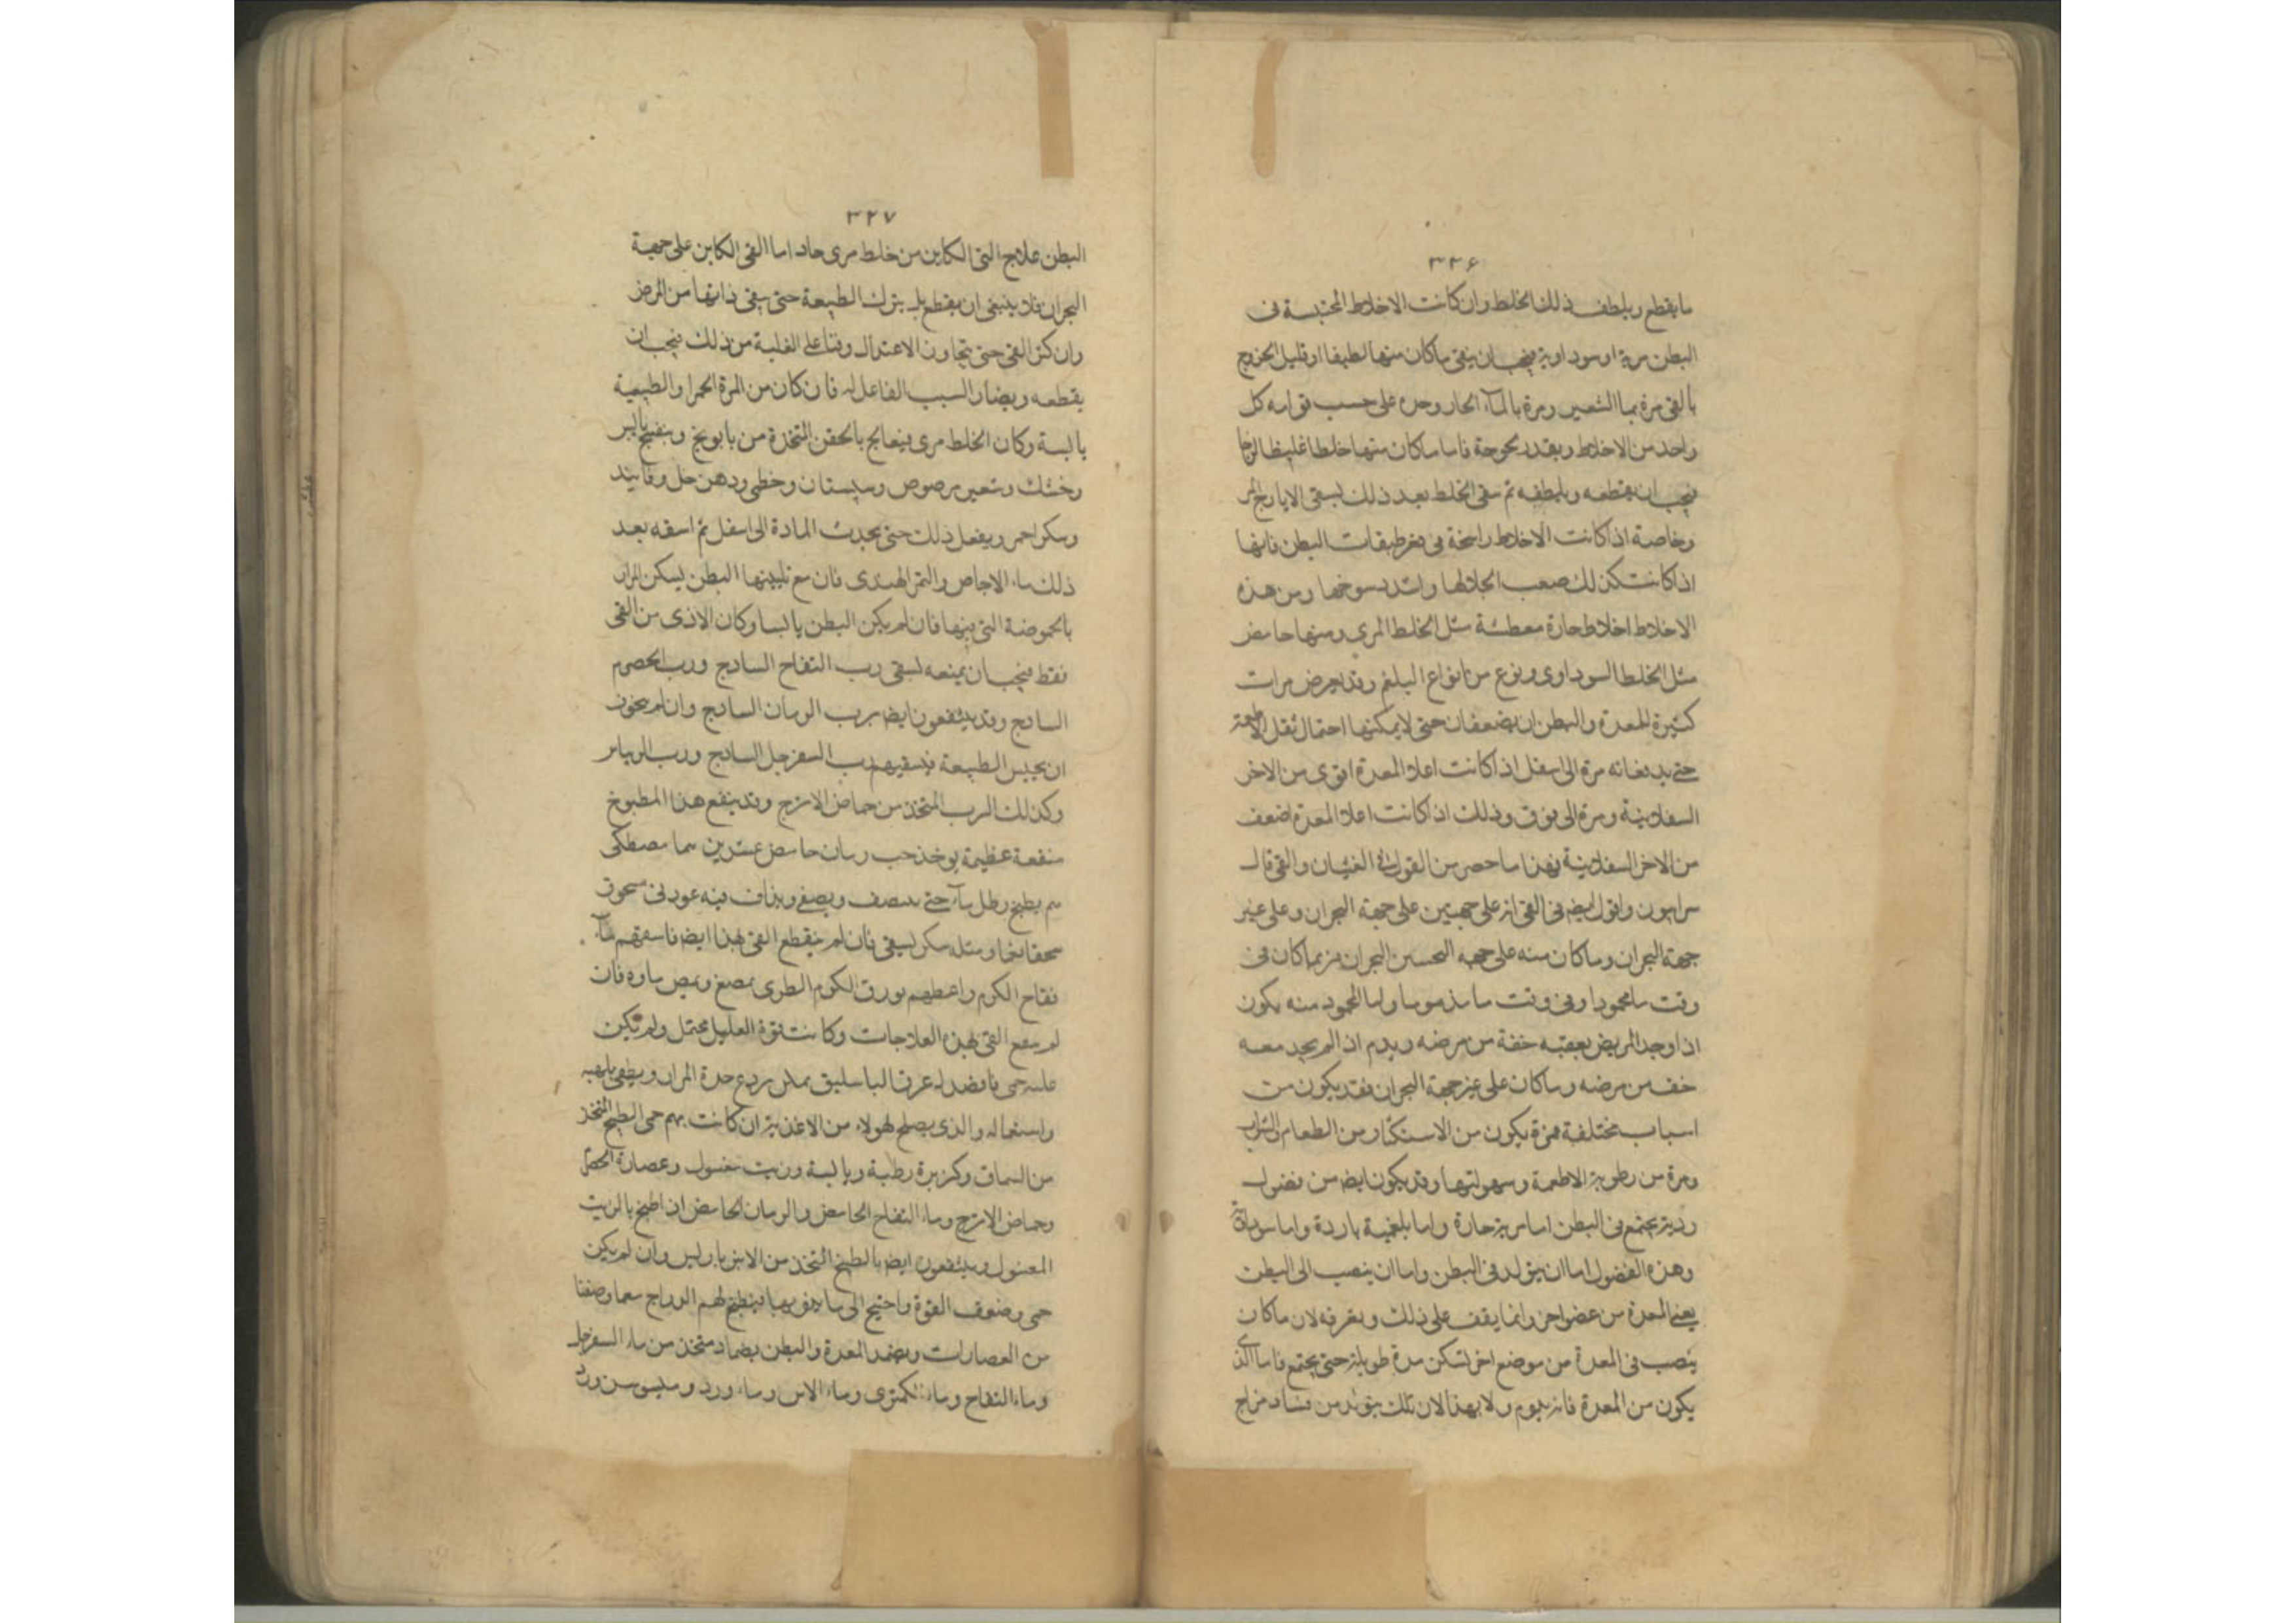 ٣٢٦
ما يقطع ويلطف ذلك الخلط وان كانت الاخلاط المحتبسة فى
البطن مرية او سوداوية فيجب ان ينقى ما كان منها لطيفا او قليل الخروج
بالقى مرة بما الشعير ومرة بالمآء الحار وحده على حسب قوامه كل
واحد من الاخلاط وبقدر فاما ما كان منها خلطا غليظا
فيجب ان يقطعه ويلطفه ثم سقى الخلط بعد ذلك بسقى الايارج
وخاصة اذا كانت الاخلاط راسخة فى طبقات البطن فانها
اذا كانت كذلك صعب انحلالها واشتد رسوخها ومن هذه
الاخلاط اخلاط حارة معطشة مثل الخلط المرى ومنها حامض
مثل الخلط السوداوى ونوع من انواع البلغم وقد يعرض مرات
كثيرة للمعدة والبطن ان يضعفان حتى لا يمكنها احتمال ثقل الاطعمة
حتى يدفعانه مرة الى اسفل اذا كانت اعلا المعدة اقوى من الاخر
السفلانية ومرة الى فوق وذلك اذا كانت اعلا المعدة اضعف
من الاخر السفلانية فهذا ما حصر من القول فى الغثيان والقى قال
سرابيون واقول ايضا فى القى انه على جهتين على جهة البحران وعلى غير
جهة البحران وما كان منه على جهه البحران فربما كان فى
وقت ما محمودا وفى وقت ما مذموما واما المحمود منه يكون
اذا وجد المريض بعقبه خفة من مرضه ويذم اذا لم يجد معه
خف من مرضه وما كان على غير جهة البحران فقد يكون من
اسباب مختلفة فمرة يكون من الاستكثار من الطعام والشراب
ومرة من رطوبة الاطعمة وسهولتها وقد يكون ايضا من فضول
ردية يجتمع فى البطن اما مرية حارة واما بلغمية باردة واما سوداوية
وهذه الفضول اما ان يتولد فى البطن واما ان ينصب الى البطن
يعنى المعدة من عضو اخر وانما يقف على ذلك وبعرفه لان ما كان
ينصب فى المعدة من موضع اخر لتسكن مدة طويلة حتى يجتمع فاما الذى
يكون من المعدة فانه يدوم ولا يهدا لان تلك يتولد من فساد مزاج
٣٢٧
البطن علاج القى الكاين من خلط مرى حاد اما القى الكاين على جهة
البحران فلا ينبغى ان يقطع بل يترك الطبيعة حتى ينقى ذاتها من المرض
وان كثر القى حتى يتجاوز الاعتدال وقتا على الغلبة من ذلك فيجب ان
يقطعه ويضاد السبب الفاعل له فان كان من المرة الحمرا والطبيعة
يابسة وكان الخلط مرى فيعالج بالحقن المتخذة من بابونج وبنفسج يابس
وخشك وشعير مرصوص وسبستان وخطمى ودهن حل وفانيد
وسكر احمر ويفعل ذلك حتى يحدث المادة الى اسفل ثم اسقه بعد
ذلك ماء الاجاص والتمر الهندى فان مع تليينها البطن يسكن المرار
بالحموضة التى فيها فان لم يكن البطن يابسا وكان الاذى من القى
فقط فيجب ان يمنعه بسقى رب التفاح الساذج ورب الحصرم
الساذج وقد ينتفعون ايضا برب الرمان الساذج وان لم يخوف
ان يحبس الطبيعة فيسقيهم رب السفرجل الساذج ورب الريباس
وكذلك الرب المتخذ من حماض الاترج وقد ينفع هذا المطبوخ
منفعة عظيمة يوخذ حب رمان حامض عشرين مصطكى
يطبخ رطل مآء حتى ينصف ويصفى ويذاف فيه عود نى مسحوق
سحقا ناعما ومثله سكر يسقى فان لم ينقطع القى بهذا ايضا فاسقهم مآء
فقاح الكرم واعطهم ورق الكرم الطرى يمضغ ويمص ماوه فان
لم القى بهذه العلاجات وكانت قوة العليل محتمل ولم تكن
حمى فافصد له عرق الباسليق يمكن ردع حدة المرار ويطفى
واسهاله والذى يصلح لهولاء من الاغذية ان كانت بهم حمى الطبيخ المتخذ
من السماق وكزبرة رطبة ويابسة وزيت مغسول وعصارة الحصرم
وحماض الاترج وماء التفاح الحامض والرمان الحامض اذا طبخ بالزيت
المغسول وينتفعون ايضا بالطبيخ المتخذ من الانبرباريس وان لم يكن
حمى وضعف القوة واحتيج الى ما يقويها فيطبخ لهم الدراج معما وصفنا
من العصارات ويضمد المعدة والبطن بضماد متخذ من ماء السفرجل
وماء التفاح وماء الكمثرى وماء الاس وماء ورد وميسوسن